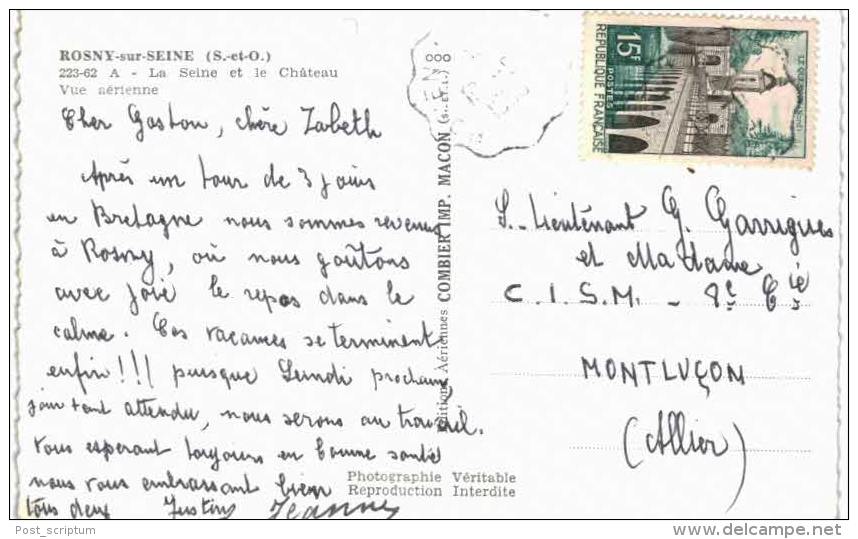 ROSNY-sur-SEINE (S.-et-O.)
223-62 A - La Seine et le Château
Vue aérienne
Cher Gaston, chère Zabeth
Après un tour de 3 jours
en Bretagne nous sommes revenus
à Rosny, où nous goûtons
avec joie le repos dans le
calme. Ces vacances se terminent
enfin!!! puisque Lundi prochain,
jour tant attendu, nous serons au travail.
Vous espérant toujours en bonne santé
nous vous embrassons bien
tous deux Justin Jeanne
Editions Aériennes COMBIER IMP. MACON (S.-ET-L.)
Photographie Véritable
Reproduction Interdite
15F
POSTES
REPUBLIQUE FRANÇAISE
LE QUESNOY
S.-Lieutenant G. Garrigues
et Madame
C.I.S.M. - 8e Cie
MONTLUÇON
(Allier)
Post_scriptum
www.delcampe.net